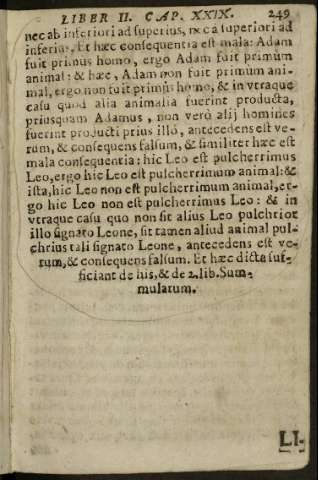 LIBER II. CAP. XXIX. 249
nec ab inferiori ad superius, nec à superiori ad
inferius, Et hæc consequentia est mala: Adam
fuit primus homo, ergo Adam fuit primum
animal: & hæc, Adam non fuit primum ani-
mal, ergo non fuit primus homo, & in vtraque
casu quod alia animalia fuerint producta,
priusquam Adamus, non verò alij homines
fuerint producti prius illo, antecedens est ve-
rum, & consequens falsum, & similiter hæc est
mala consequentia: hic Leo est pulcherrimus
Leo, ergo hic Leo est pulcherrimum animal: &
ista, hic Leo non est pulcherrimum animal, er-
go hic Leo non est pulcherrimus Leo: & in
vtraque casu quo non sit alius Leo pulchrior
illo signato Leone, sit tamen aliud animal pul-
chrius tali signato Leone, antecedens est ve-
rum, & consequens falsum. Et hæc dicta suf-
ficiant de his, & de 2. lib. Sum-
mularum.
LI-